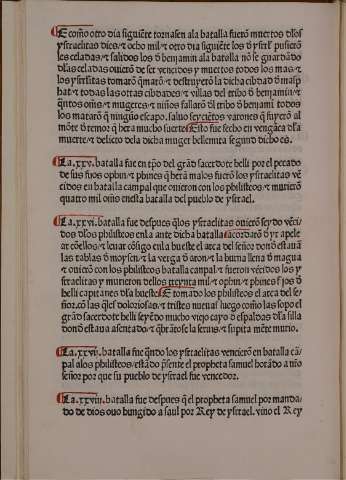 E como otro dia siguiẽte tornasen ala batalla fuerõ muertos dlos
ysraelitas diez & ocho mil & otro dia siguiẽte los dysrĺ pusierõ
les celadas / & salidos los d benjamin ala batalla nõ se guardãdo
dlas celadas ouierõ de ser vencidos y muertos todos los mas &
los ysrĺitas tomarõ q̃marõ / & destruyerõ la dicha cibdad d masp
hat & todas las otras cibdades & villas del tribo d benjamin / &
q̃ntos om̃s / & mugeres / & niños fallarõ dl tribo d benjami todos
los matarõ q̃ ningũo escapo. saluo seyciẽtos varones q̃ fuyerõ al
mõte d remor q̃ hera mucho fuerte. Esto fue fecho en vengãça dla
muerte / & delicto dela dicha muger bellemita segund dicho es.
La.xxv. batalla fue en tp̃o del grãd sacerdote helli por el pecado
de sus fijos ophin / & phines q̃ herã malos fuerõ los ysraelitas vẽ
cidos en batalla campal que ouieron con los philisteos / & murierõ
quatro mil onbres enesta batalla del pueblo de ysrael.
La.xxvi. batalla fue despues q̃ los ysraelitas ouierõ seydo vẽci
dos dlos philisteos enla ante dicha batalla / acordarõ d yr apele
ar cõellos / & leuar cõsigo enla hueste el arca del señor dond estauã
las tablas d moysen / & la verga d aron / & la buxeta llena d magna
& ouierõ con los philisteos batalla canpal / & fuerõ vẽcidos los y
sraelitas y murieron dellos treynta mil / & ophin / & phines fijos d
helli capitanes dla hueste. E tomado los philisteos el arca del se
ñor. cõ las q̃les dolorosas / & tristes nueuas luego como las sopo el
grãd sacerdote helli seyẽdo mucho viejo cayo d espaldas dla silla
dond estaua asentado / & q̃brãtose la seruiz / & supita mẽte murio.
La.xxvii. batalla fue q̃ndo los ysraelitas vencierõ en batalla cã-
pal alos philisteos / estãdo p̃sente el propheta samuel horãdo a nr̃o
señor por que su pueblo de ysrael fue vencedor.
La.xxviii. batalla fue despues q̃ el propheta samuel por manda-
do de dios ouo hungido a saul por Rey de ysrael. vino el Rey